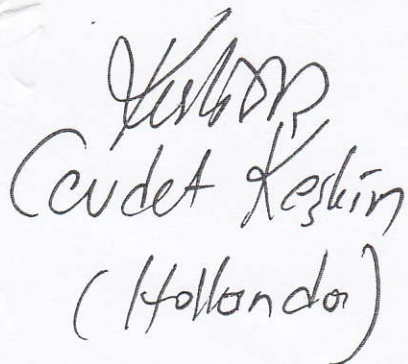 Cevdet Keşkin
(Hollanda)